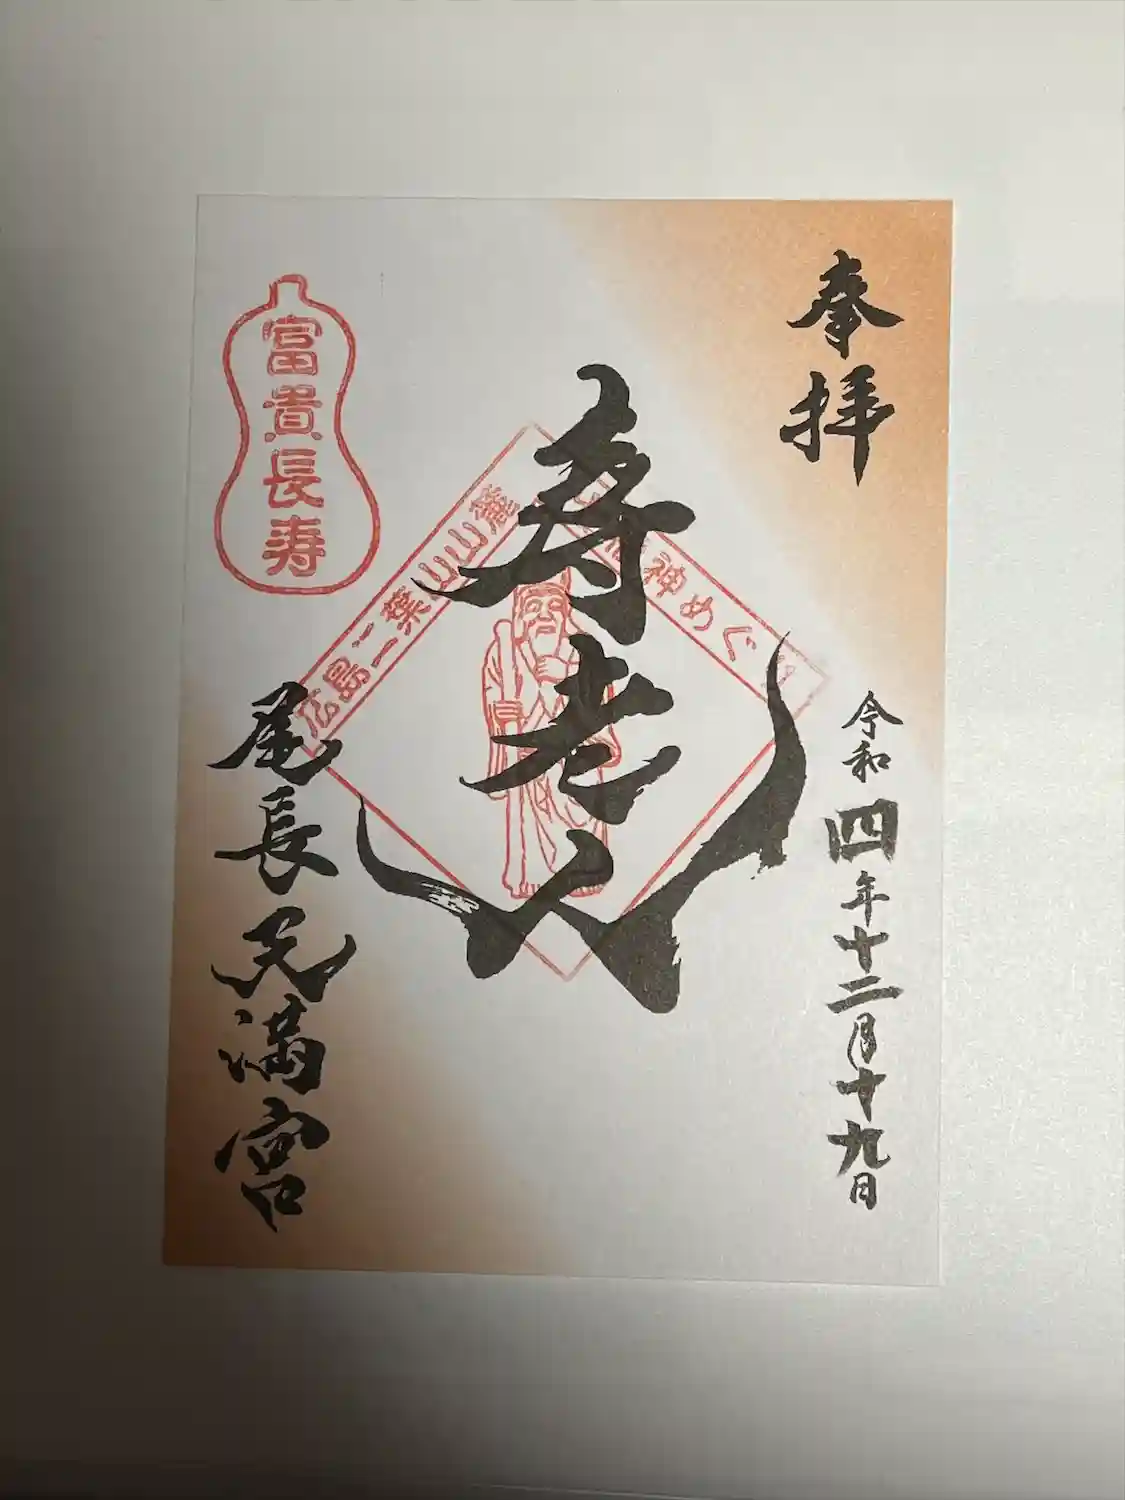 奉拝
令和四年十二月十九日
寿老人
広島二葉山山麓
神めぐ
富貴長寿
尾長天満宮